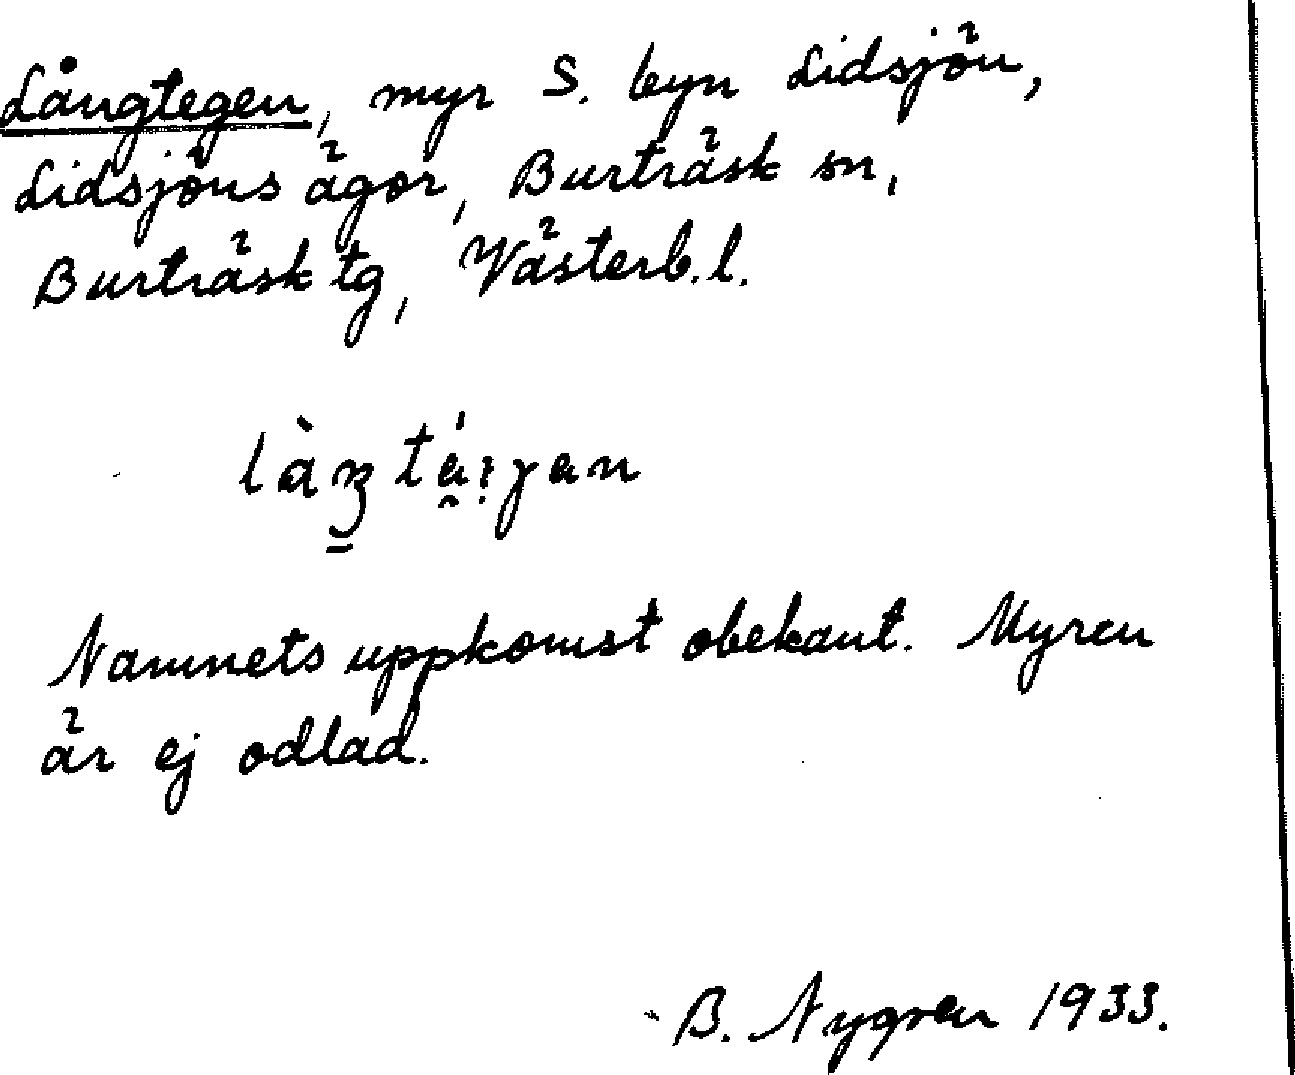 Långtegen, myr S. byn Lidsjön,
Lidsjöns ägor, Burträsk sn,
Burträsk tg, Västerb. l.
Namnets uppkomst obekant. Myren
är ej odlad.
B. Nygren 1933.